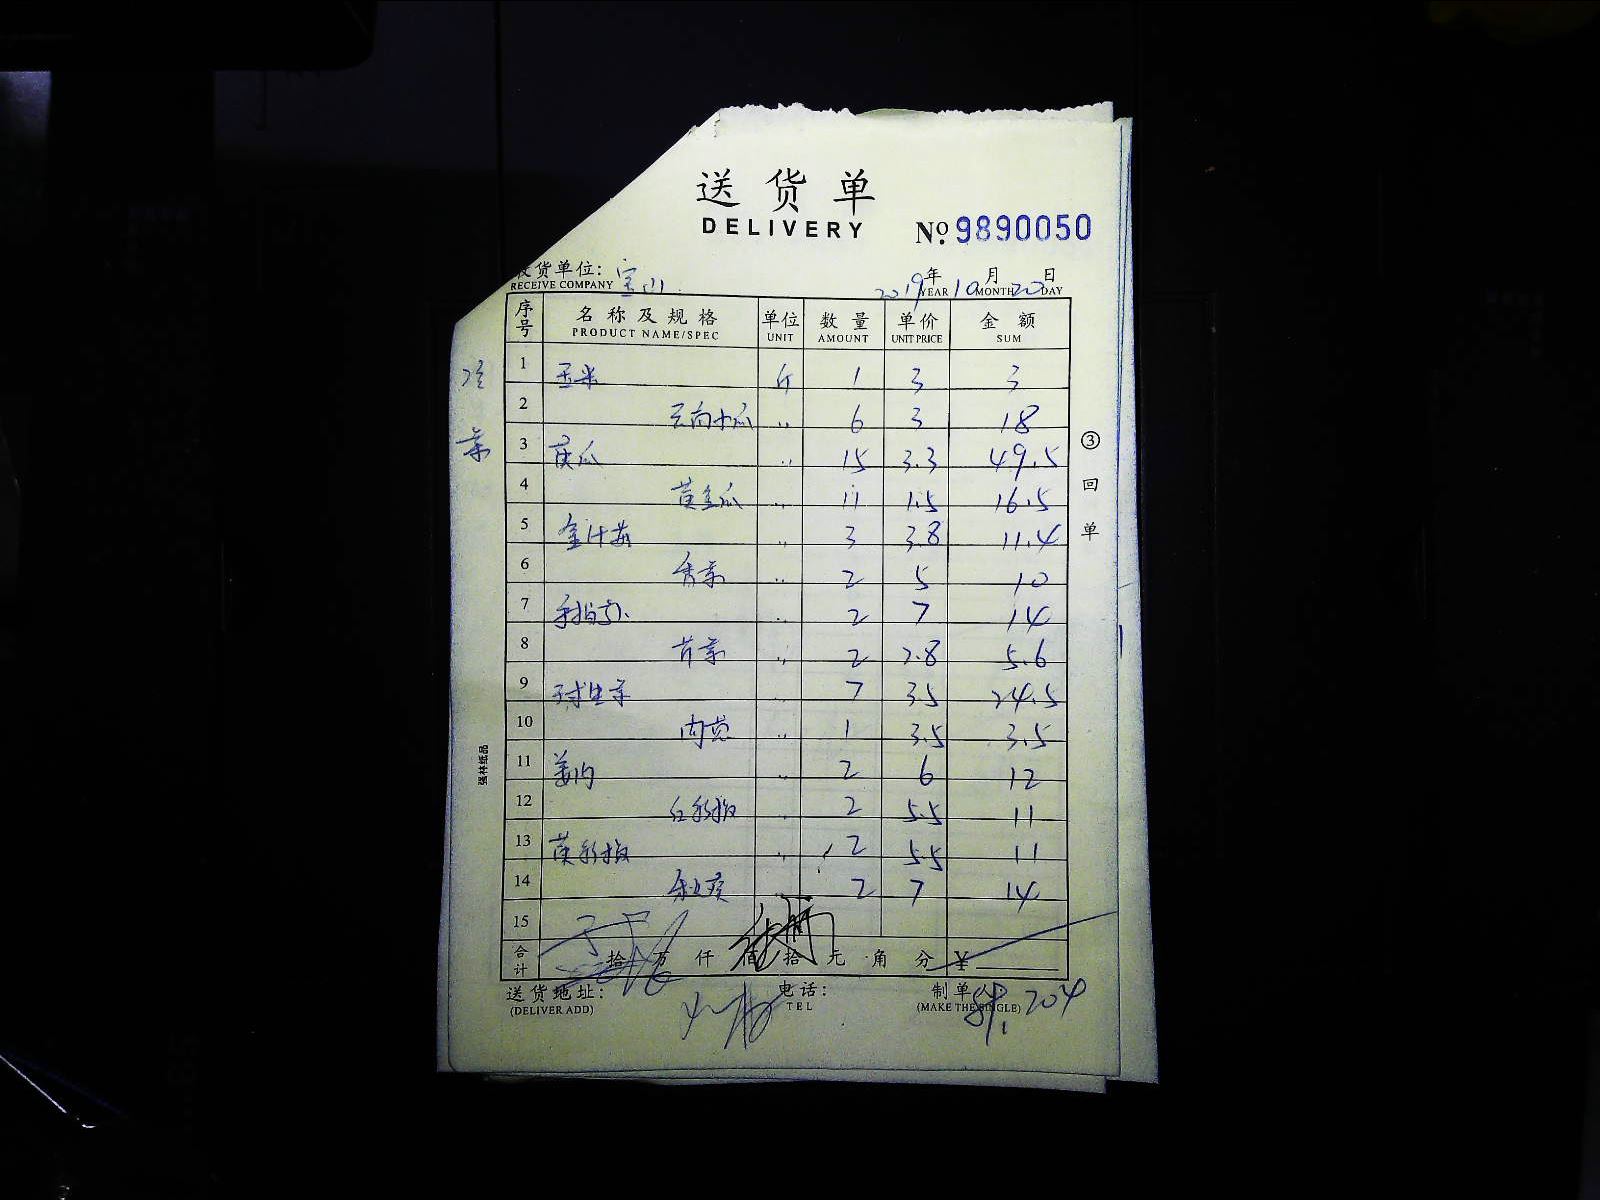 送货单
DELIVERY
No. 9890050
收货单位: 宝山
RECEIVE COMPANY
2019年10月20日
YEAR MONTH DAY
序号 名称及规格 单位 数量 单价 金额
PRODUCT NAME/SPEC UNIT AMOUNT UNIT PRICE SUM
1 玉米 斤 1 3 3
2 〃 6 3 18
3 黄瓜 〃 15 3.3 49.5
4 黄金瓜 〃 11 1.5 16.5
5 金针菇 〃 3 3.8 11.4
6 香菜 〃 2 5 10
7 〃 2 7 14
8 〃 2 2.8 5.6
9 球生菜 7 3.5 24.5
10 肉葱 〃 1 3.5 3.5
11 姜肉 〃 2 6 12
12 红彩椒 〃 2 5.5 11
13 黄彩椒 〃 2 5.5 11
14 2 7 14
15
合计 拾 万 仟 佰 拾 元 角 分 ¥
送货地址: 电话: 制单人:
(DELIVER ADD) TEL (MAKE THE SINGLE)
204
③回单
强林纸品